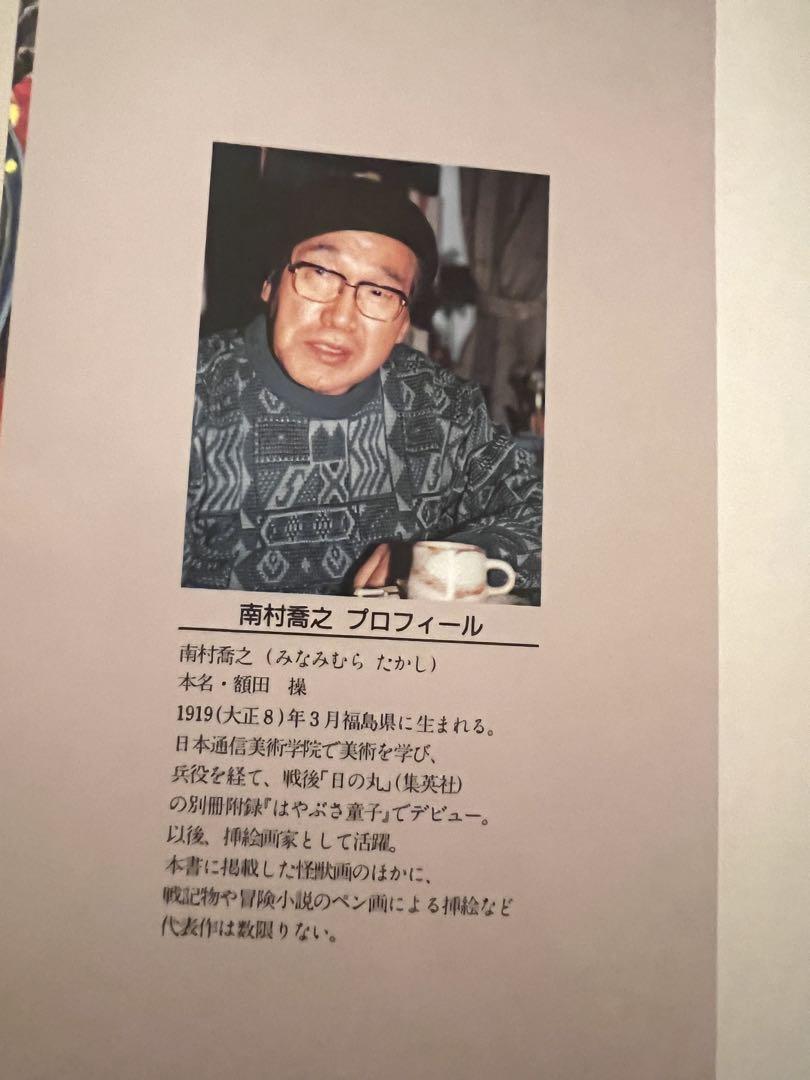 南村喬之 プロフィール
南村喬之(みなみむら たかし)
本名・額田 操
1919(大正8)年3月福島県に生まれる。
日本通信美術学院で美術を学び、
兵役を経て、戦後「日の丸」(集英社)
の別冊附録『はやぶさ童子』でデビュー。
以後、挿絵画家として活躍。
本書に掲載した怪獣画のほかに、
戦記物や冒険小説のペン画による挿絵など
代表作は数限りない。